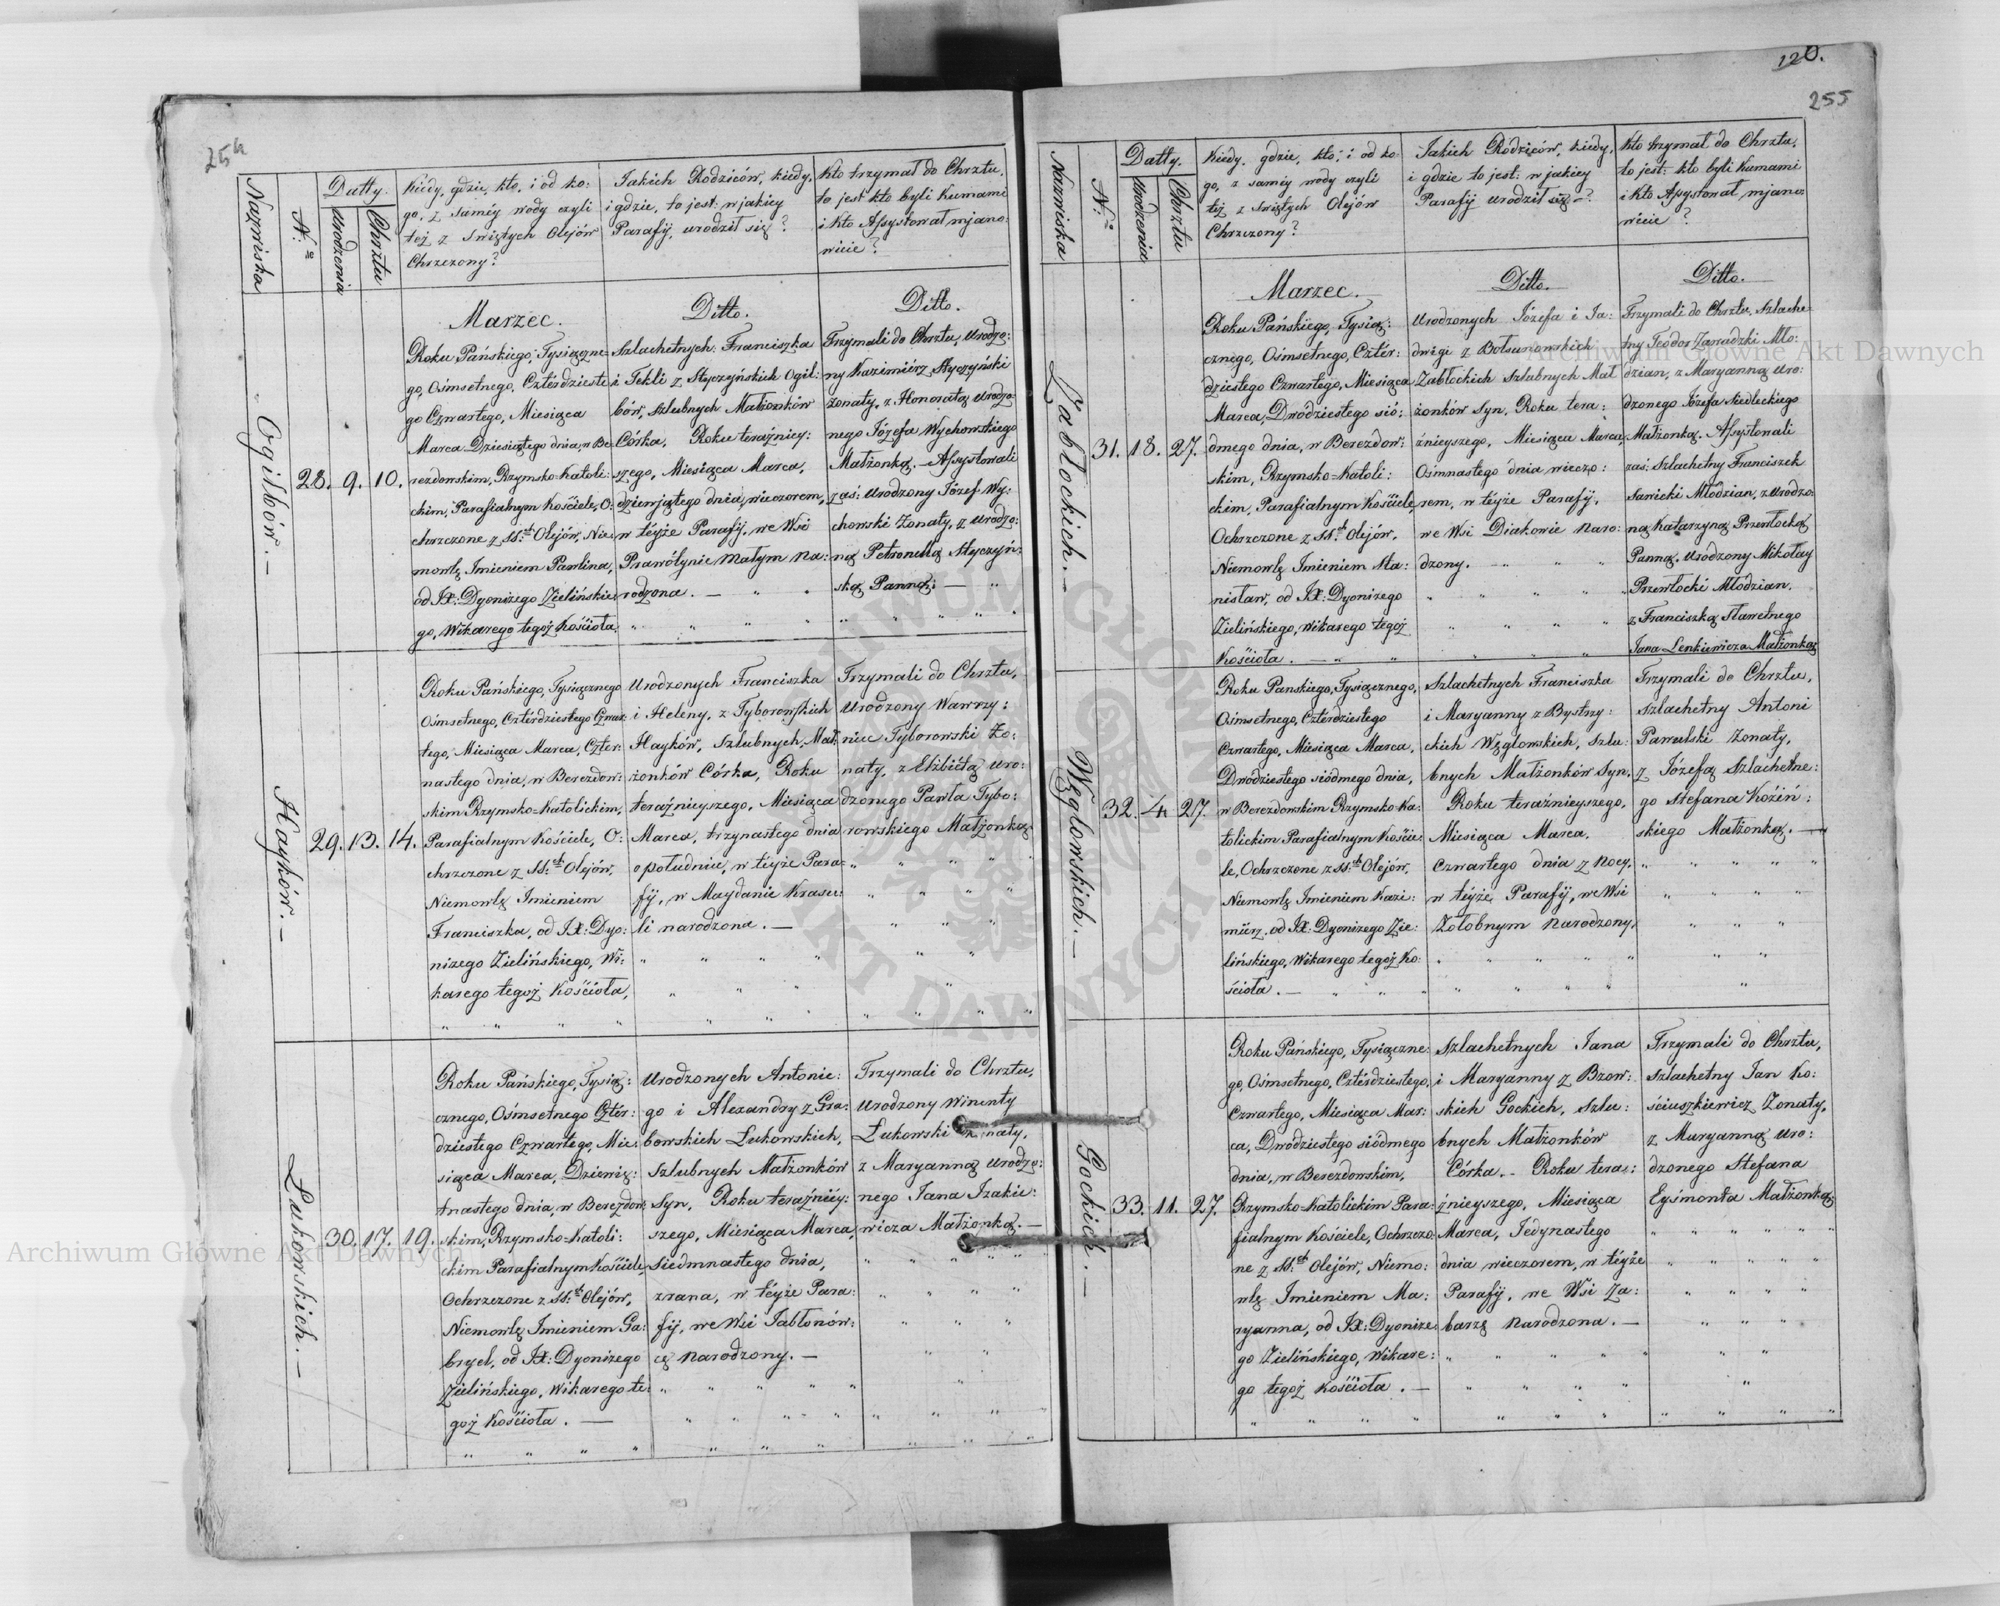 254
Nazwiska
N.ro
Datty.
Urodzenia
Chrztu
Kiedy, gdzie, kto, i od ko:
go, z saméy wody czyli
też z Swiętych Olejów
Chrzczony?
Jakich Rodziców, kiedy,
i gdzie, to jest: w jakiey
Parafij, urodził się?
Kto trzymał do Chrztu,
to jest kto byli Kumami
i Kto Assystował mjano:
wicie?
Marzec.
Ditto.
Ditto.
Ogilbów. —
28.
9.
10.
Roku Pańskiego, Tysiączne:
go, Ośmsetnego, Czterdzieste
go Czwartego, Miesiąca
Marca Dziesiątego dnia, w Be
rezdowskim, Rzymsko-Katoli:
ckim, Parafialnym Kościele, O:
chrzczone z SS.ch Olejów, Nie:
mowlę Imieniem Pawlina,
od JX: Dyonizego Zielińskie:
go, Wikarego tegoż Kościoła.
Szlachetnych: Franciszka
i Tekli z Styczyńskich Ogil:
bów, Szlubnych Małżonków
Córka, Roku teraźniey:
szego, Miesiąca Marca,
dziewiątego dnia, wieczorem,
w téyże Parafij, we Wsi
Prawótynie Małym na:
rodzona. —
Trzymali do Chrztu, Urodzo:
ny Kazimiérz Styczyński
żonaty, z Honoratą Urodzo:
nego Józefa Wychowskiego
Małżonką. — Assystowali
zaś: Urodzony Józef Wy:
chowski Zonaty, z Urodzo:
ną Petronellą Styczyń:
ską Panną; —
Hayków. —
29.
13.
14.
Roku Pańskiego, Tysiącznego
Ośmsetnego, Cztérdziestego Czwar:
tego, Miesiąca Marca, Czter:
nastego dnia, w Berezdow:
skim Rzymsko-Katolickim,
Parafialnym Kościele, O:
chrzczone z SS.ch Olejów,
Niemowlę Imieniem
Franciszka, od JX: Dyo:
nizego Zielińskiego, Wi:
karego tegoż Kościoła,
Urodzonych Franciszka
i Heleny, z Tyborowskich
Hayków, Szlubnych, Mał:
żonków Córka, Roku
teraźnieyszego, Miesiąca
Marca, trzynastego dnia
o południu, w téyże Para:
fij, w Maydanie Krasu:
li narodzona. —
Trzymali do Chrztu,
Urodzony Wawrzy:
niec Tyborowski Żo:
naty, z Elżbiétą Uro:
dzonego Pawła Tybo:
rowskiego Małżonką
Łukowskich. —
30.
17.
19.
Roku Pańskiego, Tysią:
cznego, Ośmsetnego Cztér:
dziestego Czwartego, Mie:
siąca Marca, Dziewię:
tnastego dnia, w Berezdow:
skim, Rzymsko-Katoli:
ckim Parafialnym Kościele,
Ochrzczone z SS.ch Olejów,
Niemowlę Imieniem Ga:
bryel, od JX: Dyonizego
Zielińskiego, Wikarego te:
goż Kościoła. —
Urodzonych Antonie:
go i Alexandry z Gra:
bowskich Łukowskich,
Szlubnych Małżonków
Syn, Roku teraźniéy:
szego, Miesiąca Marca,
Siedmnastego dnia,
zrana, w téyże Para:
fij, we Wsi Jabłonów:
ce Narodzony. —
Trzymali do Chrztu,
Urodzony Winenty
Łukowski Zonaty,
z Maryanną Urodzo:
nego Jana Izakie:
wicza Małżonką. —
120.
255
Nazwiska
N.ro
Datty.
Urodzenia
Chrztu
Kiédy, gdzie, kto, i od ko:
go, z saméy wody czyli
téż z Swiętych Olejów
Chrzczony?
Jakich Rodziców, kiedy,
i gdzie to jest: w jakiey
Parafij urodził się?
Kto trzymał do Chrztu,
to jest: kto byli Kumami
i Kto Assystował mjano:
wicie?
Marzec.
Ditto.
Ditto.
Zabłockich. —
31.
18.
27.
Roku Pańskiego, Tysią:
cznego, Ośmsetnego, Cztér:
dziestego Czwartego, Miesiąca
Marca, Dwódziestego sió:
dmego dnia, w Berezdow:
skim, Rzymsko-Katoli:
ckim, Parafialnym Kościele,
Ochrzczone z SS.ch Olejów,
Niemowlę Imieniem Sta:
nisław, od JX: Dyonizego
Zielińskiego, Wikarego tegoż
Kościoła. —
Urodzonych Józefa i Ja:
dwigi z Bołsunowskich
Zabłockich Szlubnych Mał
żonków Syn, Roku tera:
źnieyszego, Miesiąca Marca,
Ośmnastego dnia wieczo:
rem, w téyże Parafij,
we Wsi Diakowie Naro:
dzony.
Trzymali do Chrztu, Szlache:
tny Teodor Zawadzki Mło:
dzian, z Maryanną Uro:
dzonego Józefa Siedleckiego
Małżonką. Assystowali
zaś: Szlachetny Franciszek
Sawicki Młodzian, z Urodzo:
ną Katarzyną Przewłocką
Panną, Urodzony Mikołay
Przewłocki Młodzian,
z Franciszką Sławetnego
Jana Lenkiewicza Małżonką
Węglowskich. —
32.
4.
27.
Roku Panskiego, Tysiącznego,
Ośmsetnego, Cztérdziestego
Czwartego, Miesiąca Marca,
Dwódziestego siódmego dnia,
w Berezdowskim Rzymsko-Ka:
tolickim Parafialnym Koście:
le, Ochrzczone z SS.ch Olejów,
Niemowlę Imieniem Kazi:
miérz, od JX: Dyonizego Zie:
lińskiego, Wikarego tegoż Ko:
ścioła. —
Szlachetnych Franciszka
i Maryanny z Bystrzy:
ckich Węglowskich, Szlu:
bnych Małżonków Syn,
Roku teraźnieyszego,
Miesiąca Marca,
czwartego dnia z Nocy,
w téyże Parafij, we Wsi
Żołobnym Narodzony,
Trzymali do Chrztu,
Szlachetny Antoni
Pawulski Zonaty,
z Józefą Szlachetne:
go Stefana Koziń:
skiego Małżonką. —
Gockich. —
33.
11.
27.
Roku Pańskiego, Tysiączne:
go, Ośmsetnego, Cztérdziestego,
Czwartego, Miesiąca Mar:
ca, Dwódziestego siódmego
dnia, w Berezdowskim,
Rzymsko-Katolickim Para:
fialnym Kościele, Ochrzczo:
ne z SS.ch Olejów, Niemo:
wlę Imieniem Ma:
ryanna, od JX: Dyonize:
go Zielińskiego, Wikare:
go tegoż Kościoła. —
Szlachetnych Jana
i Maryanny z Bzow:
skich Gockich, Szlu:
bnych Małżonków
Córka. Roku tera:
źnieyszego, Miesiąca
Marca, Jedynastego
dnia wieczorem, w téyże
Parafij, we Wsi Za:
barzę Narodzona. —
Trzymali do Chrztu,
Szlachetny Jan Ko:
ściuszkiewicz Zonaty,
z Maryanną Uro:
dzonego Stefana
Eysmonta Małżonką
Archiwum Główne Akt Dawnych
Archiwum Główne Akt Dawnych